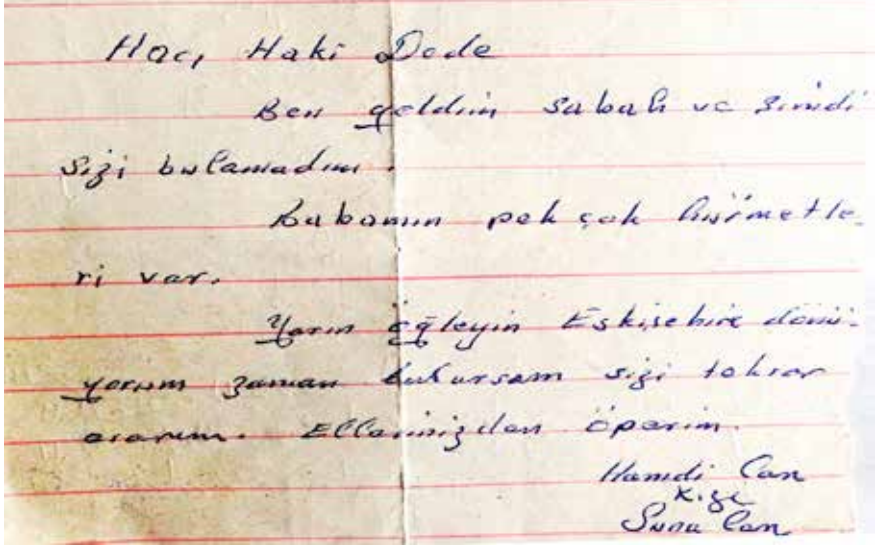 Hacı Haki Dede
Ben geldim sabah ve şimdi
sizi bulamadım.
Babamın pek çok hürmetle-
ri var.
Yarın öğleyin Eskişehire dönü-
yorum zaman bulursam sizi tekrar
ararım. Ellerinizden öperim.
Hamdi Can
kızı
Suna Can